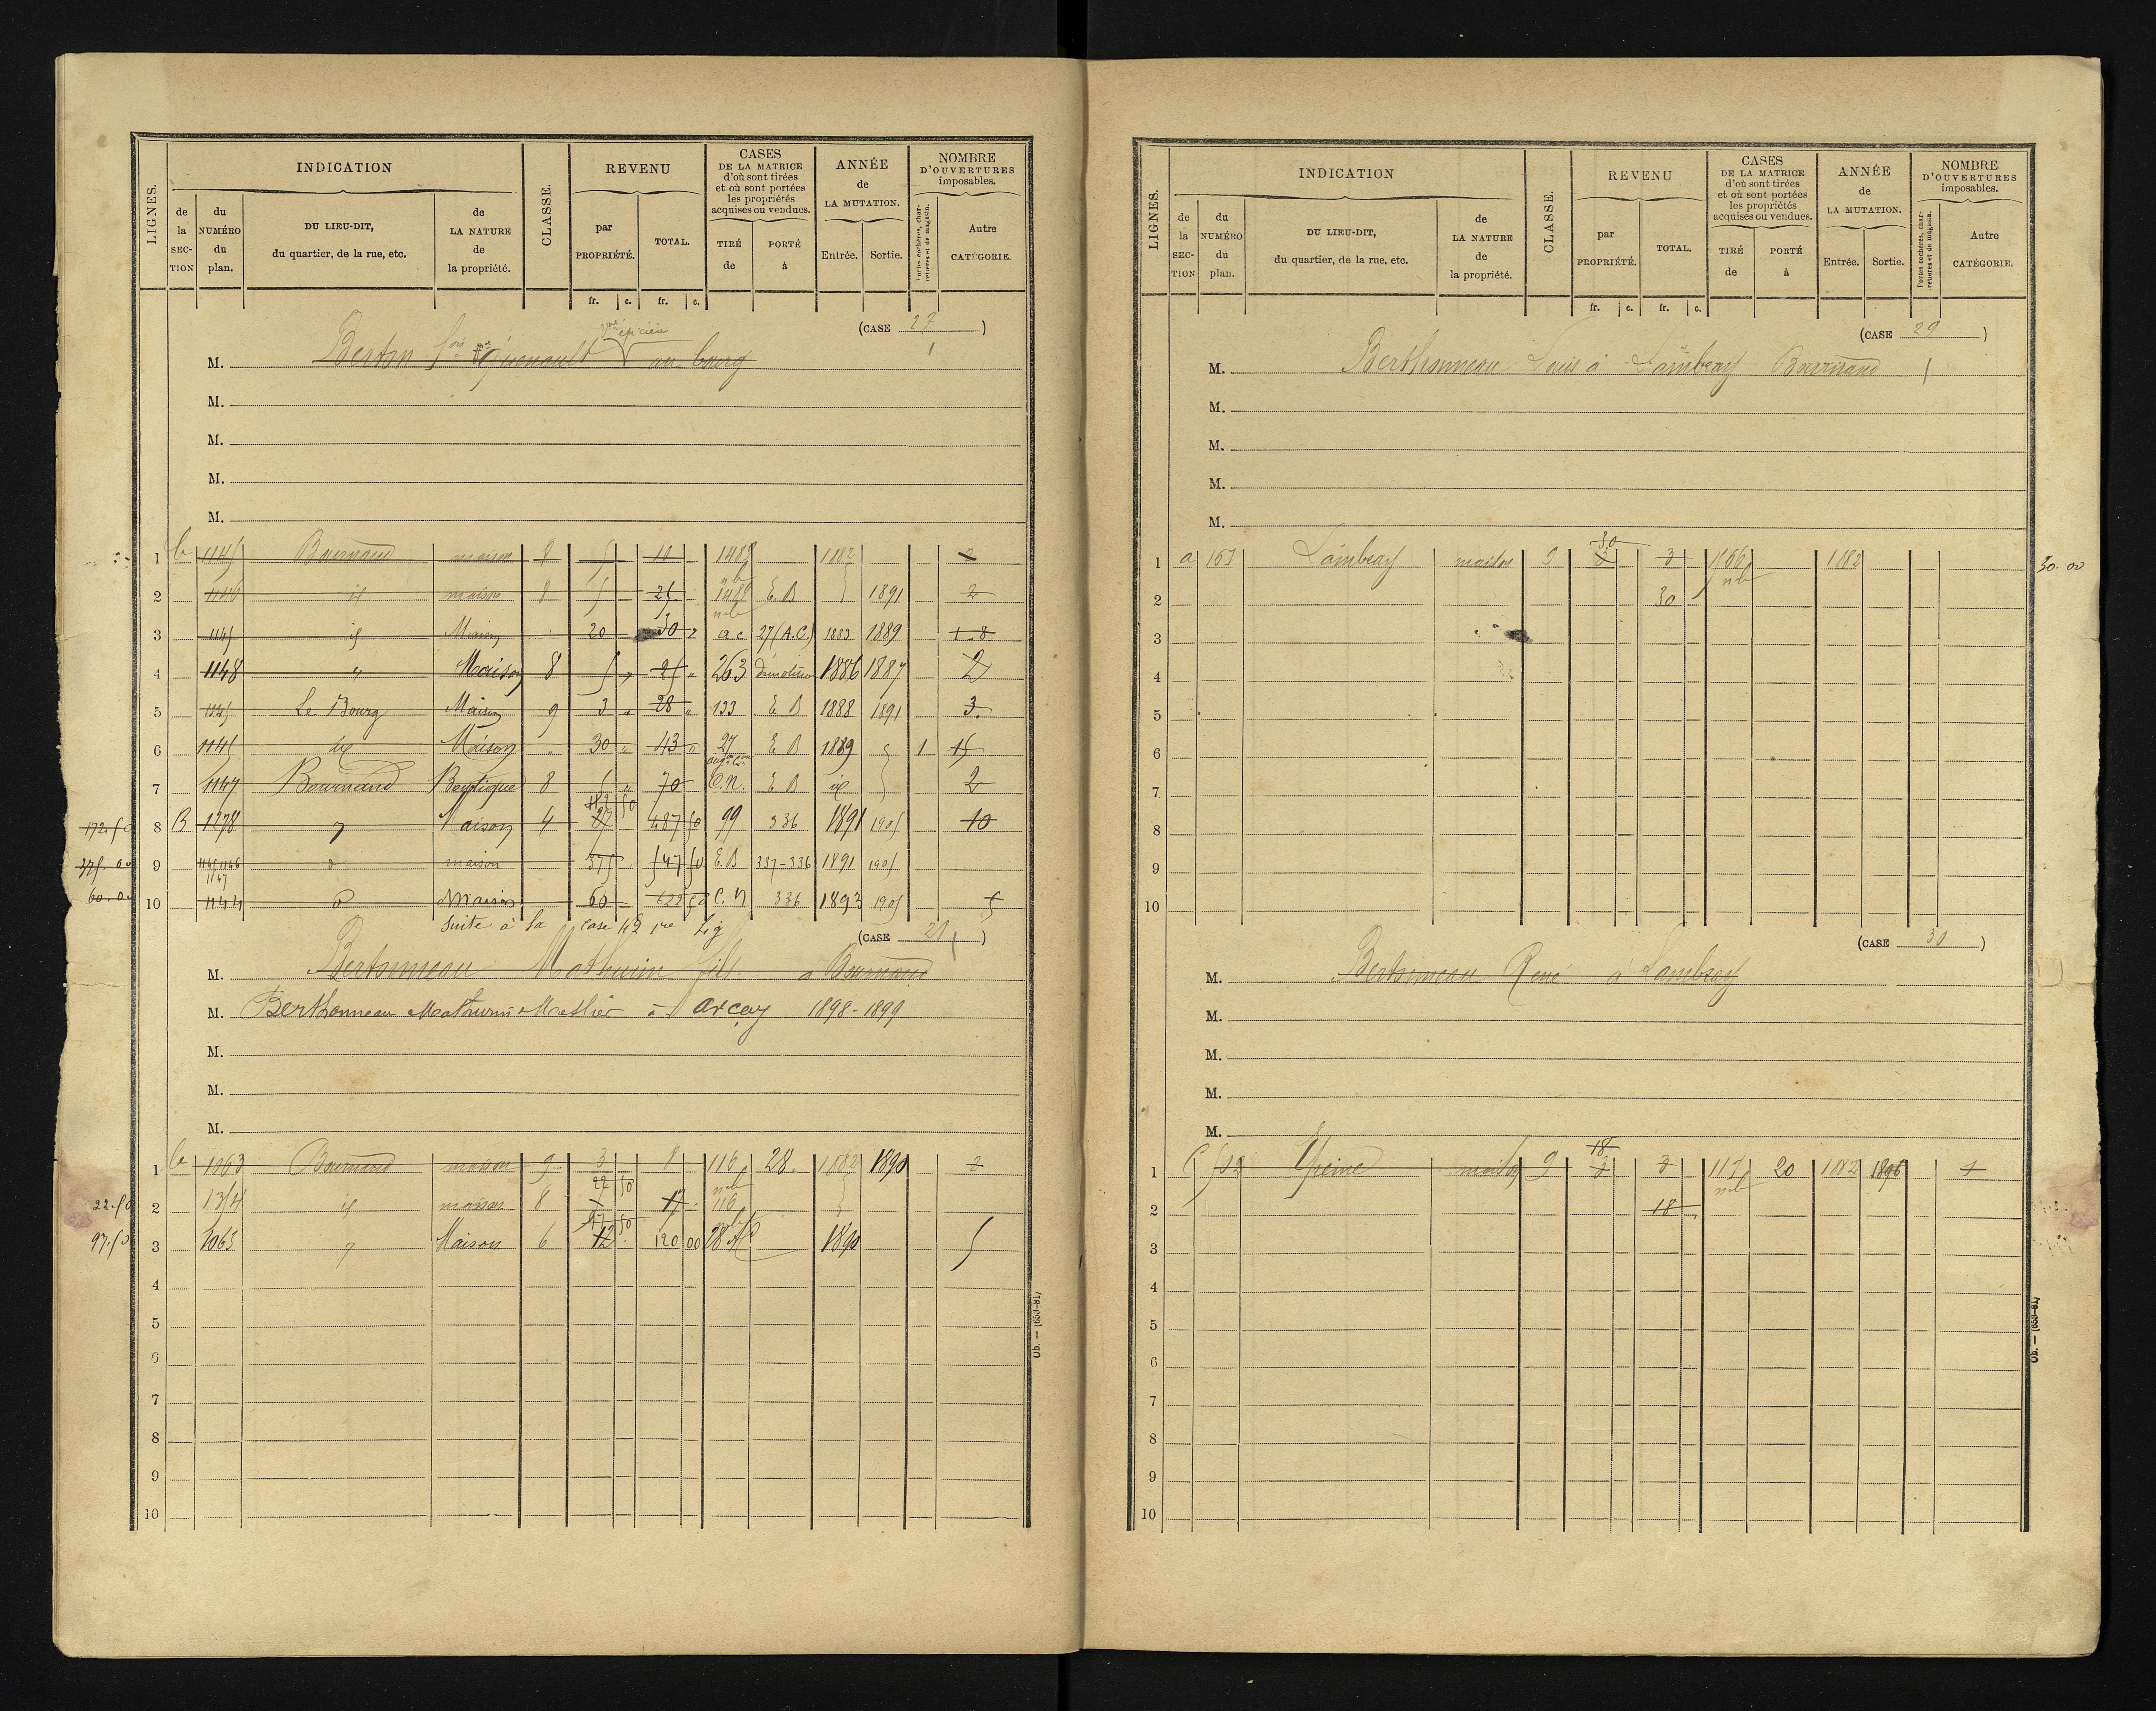 LIGNES.
INDICATION
CLASSE.
REVENU
CASES
DE LA MATRICE
d'où sont tirées
et où sont portées
les propriétés
acquises ou vendues.
ANNÉE
de
LA MUTATION.
NOMBRE
D'OUVERTURES
imposables.
de la SECTION
du NUMÉRO du plan.
DU LIEU-DIT,
du quartier, de la rue, etc.
de LA NATURE de la propriété.
par PROPRIÉTÉ.
TOTAL.
TIRÉ de
PORTÉ à
Entrée.
Sortie.
Portes cochères, charretières et de magasin.
Autre CATÉGORIE.
fr. c. fr. c.
(CASE 27)
épicier
M. Berton au bourg
M.
M.
M.
M.
1 b 1145 Bournand maison 8 10 1487 1882 2
2 1146 id maison 8 25 1487 E.B 1891 2
3 1145 id Maison 20 30 a c 27 (A.C.) 1883 1889 1 8
4 1148 " Maison 8 5 " 25 " 263 démolition 1886 1887 2
5 1145 Le Bourg Maison 9 3 " 28 " 133 E B 1888 1891 3
6 1145 id Maison " 30 " 43 " 27 E B 1889 1 15
7 1147 Bournand Boutique 8 70 C.N. E B id 2
172.50 8 B 1278 Maison 4 487 50 99 336 1891 1905 10
375.00 9 1145 1146 1147 d maison 375 547 50 E.B 337-336 1891 1905
60.0 10 1144 d Maison 60 C.N 336 1893 1905 5
Suite à la case 42 1re Lig
(CASE 28)
M. Berthonneau Mathurin fils à Bournand
M. Berthonneau Mathurin Meslier à Arçay 1898-1899
M.
M.
M.
1 b 1063 Bournand maison 9 3 8 116 28 1882 1890 2
22.50 2 1354 id maison 8 22 50 17 116
97.50 3 1063 Maison 6 97 50 12 120 00 28 1890 5
4
5
6
7
8
9
10
Ob. — (653-81)
LIGNES.
INDICATION
CLASSE.
REVENU
CASES
DE LA MATRICE
d'où sont tirées
et où sont portées
les propriétés
acquises ou vendues.
ANNÉE
de
LA MUTATION.
NOMBRE
D'OUVERTURES
imposables.
de la SECTION
du NUMÉRO du plan.
DU LIEU-DIT,
du quartier, de la rue, etc.
de LA NATURE de la propriété.
par PROPRIÉTÉ.
TOTAL.
TIRÉ de
PORTÉ à
Entrée.
Sortie.
Portes cochères, charretières et de magasin.
Autre CATÉGORIE.
fr. c. fr. c.
(CASE 29)
M. Berthonneau Louis à Lambray Bournand
M.
M.
M.
M.
1 a Lambray maison 9 30 3 3 1882 30.00
2 30
3
4
5
6
7
8
9
10
(CASE 30)
M. Berthonneau René à Lambray
M.
M.
M.
M.
1 maison 9 18 3 3 20 1882 1896 1
2 18
3
4
5
6
7
8
9
10
Ob. — (653-81)